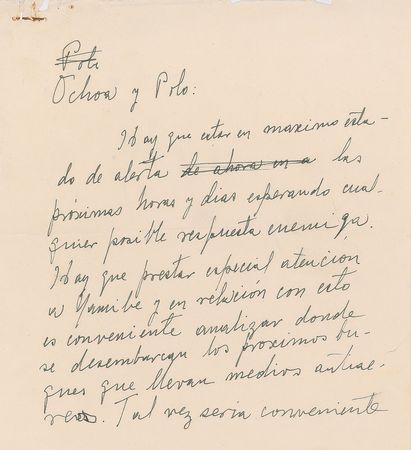 Polo
Ochoa y Polo:
Hay que estar en maximo esta-
do de alerta de ahora en a las
próximas horas y dias esperando cual-
quier posible respuesta enemiga.
Hay que prestar especial atención
a Namibe y en relación con esto
es conveniente analizar donde
se desembarcan los proximos bu-
ques que llevan medios antiae-
reos. Tal vez seria conveniente